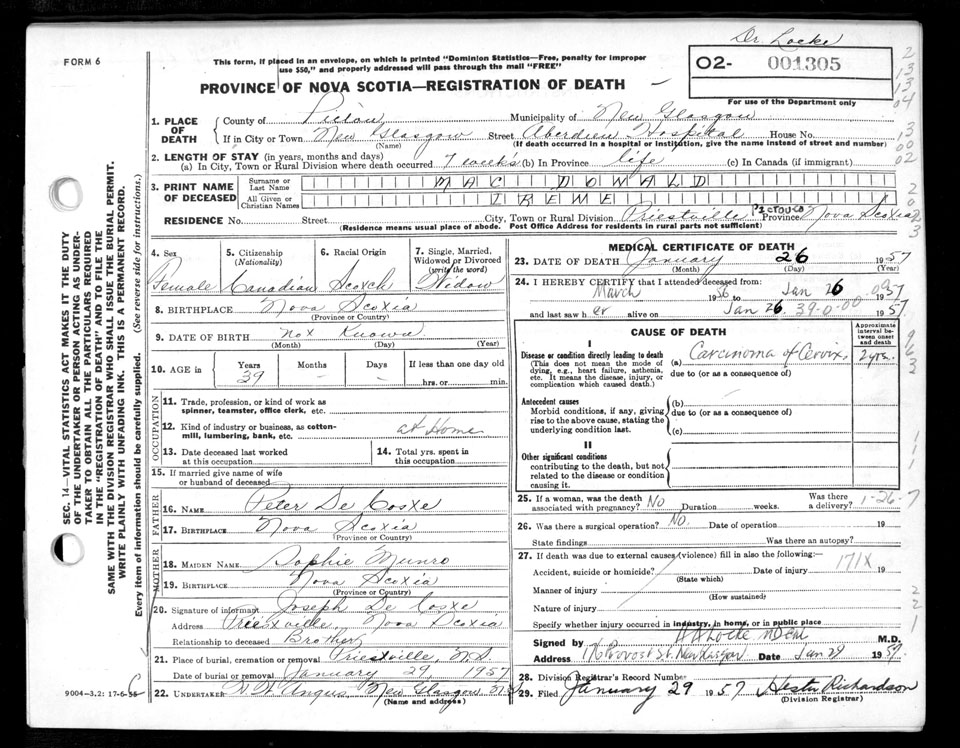 Dr. Locke
FORM 6
This form, if placed in an envelope, on which is printed "Dominion Statistics—Free, penalty for improper
use $50," and properly addressed will pass through the mail "FREE"
02- 001305
For use of the Department only
PROVINCE OF NOVA SCOTIA—REGISTRATION OF DEATH
1. PLACE OF DEATH
County of Pictou Municipality of New Glasgow
If in City or Town New Glasgow Street Aberdeen Hospital House No.
(Name) (If death occurred in a hospital or institution, give the name instead of street and number)
2. LENGTH OF STAY (in years, months and days)
(a) In City, Town or Rural Division where death occurred 7 weeks (b) In Province life (c) In Canada (if immigrant)
3. PRINT NAME OF DECEASED
Surname or Last Name MAC DONALD
All Given or Christian Names IRENE
RESIDENCE No. Street City, Town or Rural Division Priestville PICTOU CO Province Nova Scotia
(Residence means usual place of abode. Post Office Address for residents in rural parts not sufficient)
4. Sex Female
5. Citizenship (Nationality) Canadian
6. Racial Origin Scotch
7. Single, Married, Widowed or Divorced (write the word) Widow
8. BIRTHPLACE Nova Scotia
(Province or Country)
9. DATE OF BIRTH Not Known
(Month) (Day) (Year)
10. AGE in Years 39 Months - Days - If less than one day old
hrs. or min.
OCCUPATION
11. Trade, profession, or kind of work as
spinner, teamster, office clerk, etc.
12. Kind of industry or business, as cotton-
mill, lumbering, bank, etc. at Home
13. Date deceased last worked
at this occupation
14. Total yrs. spent in
this occupation
15. If married give name of wife
or husband of deceased
FATHER
16. NAME Peter De Coste
17. BIRTHPLACE Nova Scotia
(Province or Country)
MOTHER
18. MAIDEN NAME Sophie Munro
19. BIRTHPLACE Nova Scotia
(Province or Country)
20. Signature of informant Joseph De Coste
Address Priestville, Nova Scotia
Relationship to deceased Brother
21. Place of burial, cremation or removal Priestville, N.S
Date of burial or removal January 29, 1957
22. UNDERTAKER Angus New Glasgow N.S
(Name and address)
MEDICAL CERTIFICATE OF DEATH
23. DATE OF DEATH January 26 1957
(Month) (Day) (Year)
24. I HEREBY CERTIFY that I attended deceased from:
March 1956 to Jan 26 1957
and last saw her alive on Jan 26 39-0-00 1957
CAUSE OF DEATH
Approximate interval between onset and death
I
Disease or condition directly leading to death
(This does not mean the mode of
dying, e.g., heart failure, asthenia,
etc. It means the disease, injury, or
complication which caused death.)
(a) Carcinoma of Cervix 2 yrs.
due to (or as a consequence of)
Antecedent causes
Morbid conditions, if any, giving
rise to the above cause, stating the
underlying condition last.
(b)
due to (or as a consequence of)
(c)
II
Other significant conditions
contributing to the death, but not
related to the disease or condition
causing it.
25. If a woman, was the death
associated with pregnancy? No Duration weeks. Was there
a delivery? 1-26-7
26. Was there a surgical operation? No. Date of operation 19
State findings Was there an autopsy?
27. If death was due to external causes (violence) fill in also the following:—
Accident, suicide or homicide? Date of injury 171X 19
(State which)
Manner of injury
(How sustained)
Nature of injury
Specify whether injury occurred in industry, in home, or in public place
Signed by Locke M.D.
Address Provost St. New Glasgow Date Jan 29 1957
28. Division Registrar's Record Number
29. Filed January 29 1957 Hester Richardson
(Division Registrar)
9004—3.2: 17-6-55
SEC. 14—VITAL STATISTICS ACT MAKES IT THE DUTY
OF THE UNDERTAKER OR PERSON ACTING AS UNDER-
TAKER TO OBTAIN ALL THE PARTICULARS REQUIRED
IN THE "REGISTRATION OF DEATH" AND TO FILE THE
SAME WITH THE DIVISION REGISTRAR WHO SHALL ISSUE THE BURIAL PERMIT.
WRITE PLAINLY WITH UNFADING INK. THIS IS A PERMANENT RECORD.
Every item of information should be carefully supplied. (See reverse side for instructions.)